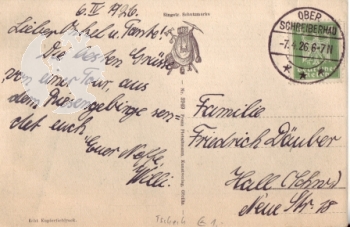 6. IV 1926.
Lieber Onkel u. Tante!
Die besten Grüße
von einer Tour, aus
dem Riesengebirge sen-
det euch
Euer Neffe
Willi.
OBER
SCHREIBERHAU
-7.4.26.6-7N
Familie
Friedrich Däuber
Hall (Schwa)
Neue Str. 18
Echte Kupfertiefdruck.